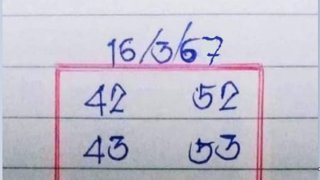 16/3/67
42 52
43 53